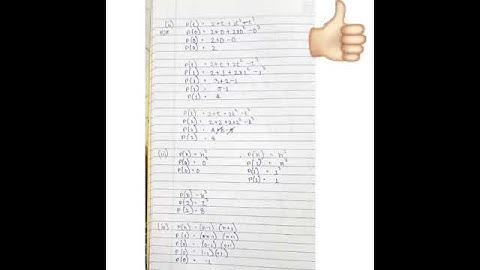 (ii) P(t) = 2+t+2t²-t³
P(0) = 2+0+2×0²-0³
P(0) = 2+0-0
P(0) = 2
P(t) = 2+t+2t²-t³
P(1) = 2+1+2×1²-1³
P(1) = 3+2-1
P(1) = 5-1
P(1) = 4
P(t) = 2+t+2t²-t³
P(2) = 2+2+2×2²-2³
P(2) = 4+8-8
P(2) = 4
(iii) P(x) = x³
P(0) = 0³
P(0) = 0
P(x) = x³
P(1) = 1³
P(1) = 1
P(x) = x³
P(2) = 2³
P(2) = 8
(iv) P(x) = (x-1) (x+1)
P(0) = (0-1) (0+1)
P(0) = (-1) (+1)
P(0) = -1